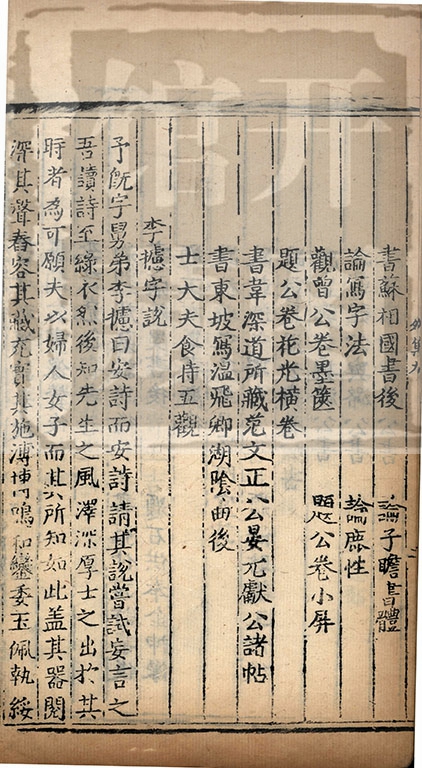 書蘇相國書後　論子瞻書體
論寫字法　論鹿性
觀曾公卷墨篋　題公卷小屏
題公卷花光橫卷
書韋深道所藏范文正公晏元獻公諸帖
書東坡寫溫飛卿湖陰曲後
士大夫食時五觀
李摅字説
予旣字舅弟李摅曰安詩而安詩請其說嘗試妄言之
吾讀詩至綠衣然後知先生之風澤深厚士之出於其
時者為可願夫以婦人女子而其所知如此盖其器閎
深其聲舂容其藏充實其施溥博鳴和鑾委玉佩執綏